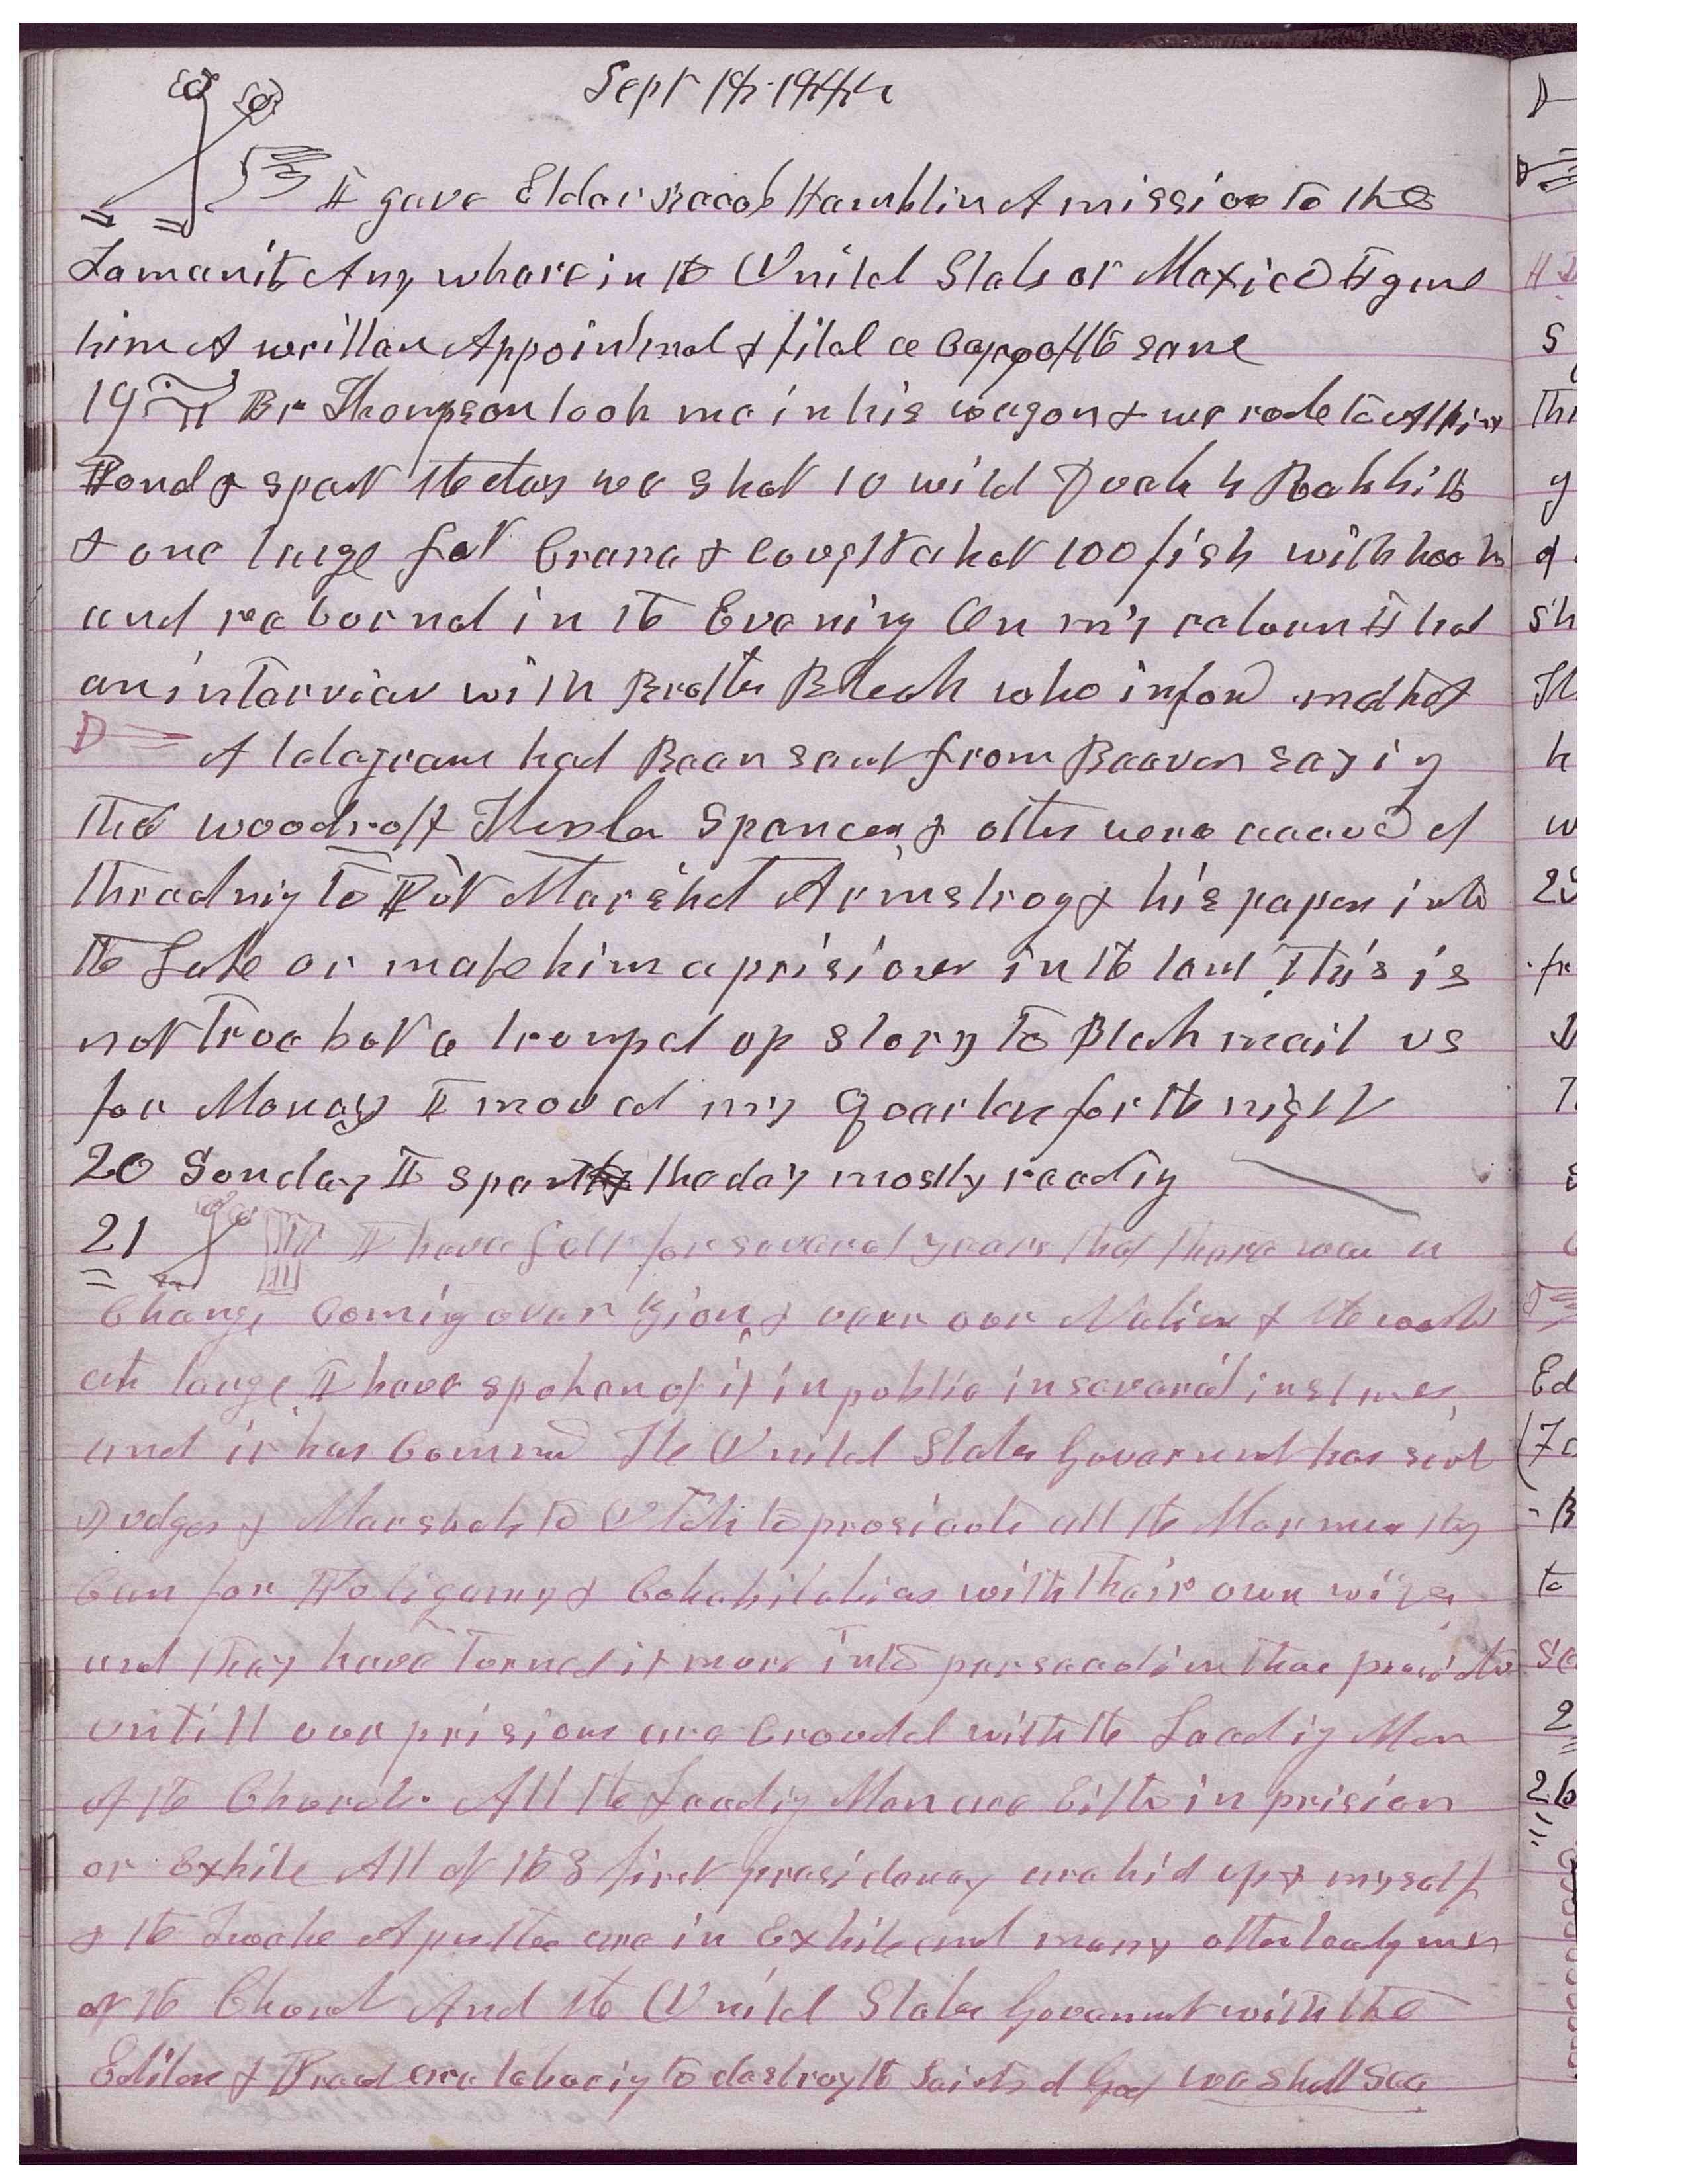 Sept 18, 1885
I gave Elder Jacob Hamblin A mission to the
Lamanits Any whare in the United States or Mexico I gave
him A written Appointmet & filed a Coppy of the same
19 Br Thompson took me in his wagon & we rode to Atkin
Pond & spent the day we shot 10 wild Duck 4 Rabbitts
& one large fat Crane & caught about 100 fish with hook
and returned in the Evening On my return I had
an interview with Brother Bleak who infomd me that
A telegram had Been sent from Beaver saying
that Woodruff Thurber Spencer & others were accused of
threatning to Put Marshal Armstrog & his papers into
the Lake or make him a prisioner in the land This is
not true but a trumped up story to Black mail us
for Money I moved my Quarters for the night
20 Sunday I spent the day mostly reading
21 I have felt for several years that there was a
Change Coming over Zion, & over our Nation & the world
at large I have spoken of it in public in several instances
and it has Commenced The United States Goverment has sent
Judges & Marshals to Utah to prosicute all the Mormons they
Can for Poligamy & Cohabitation with their own wives
and they have turned it more into persecution than prosicution
untill our prisions are Crouded with the Leadig Men
of the Church. All the Leadig Men are Either in prision
or Exhile All of the 3 first presidency are hid up & myself
& the Twelve Apostles are in Exhile and many other leadig men
of the Church And the United States Goverment with the
Editors & Priest are laboring to destroy the Saints of God we shall see